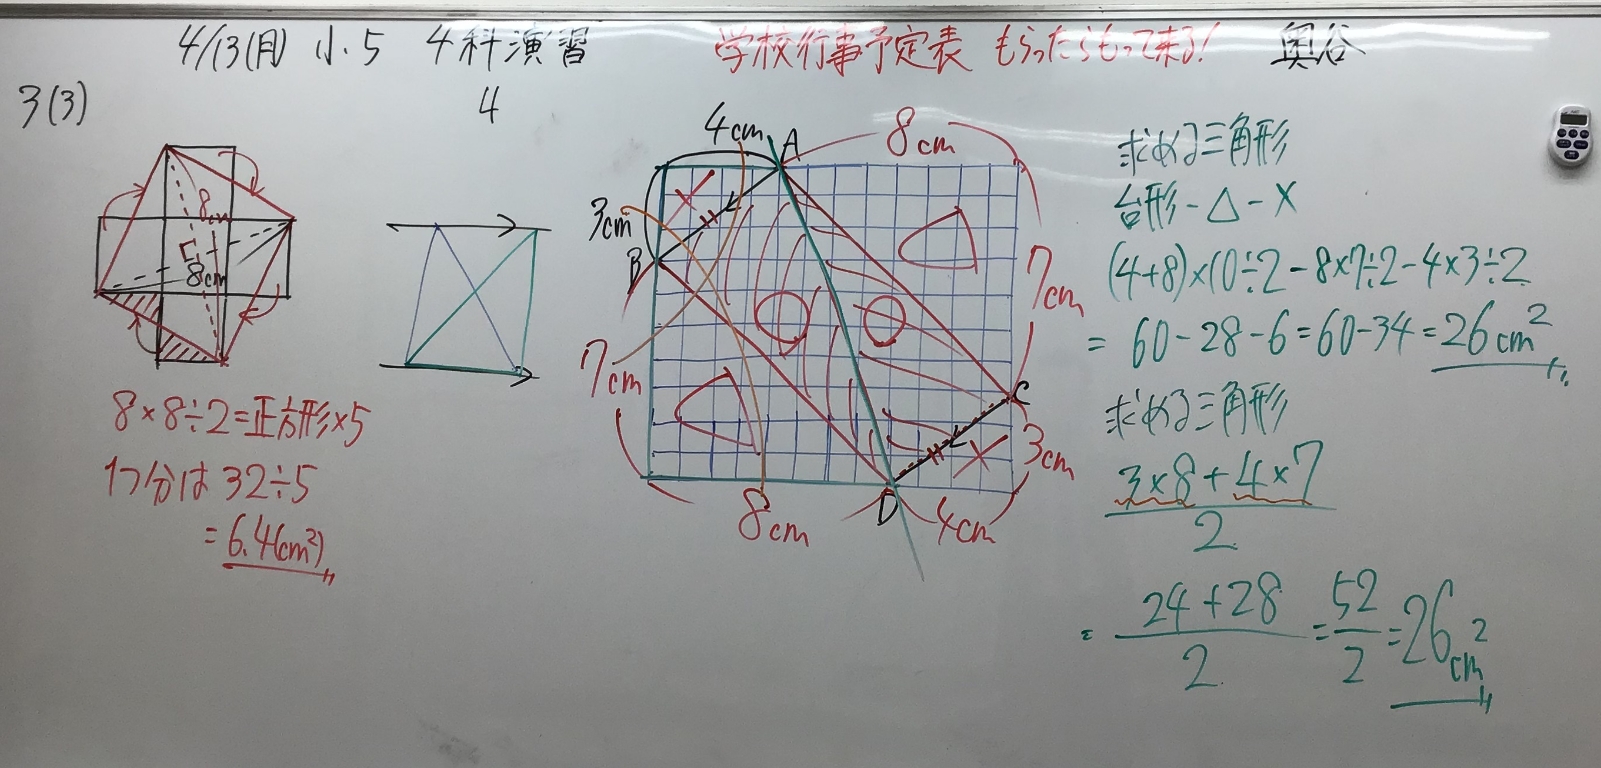 4/13(月) 小5 4科演習 学校行事予定表 もらったらもって来る! 奥谷
3(3)
8cm
8cm
8×8÷2=正方形×5
1つ分は 32÷5
=6.4(cm²)
4
4cm
A
8cm
3cm
B
7cm
7cm
C
3cm
8cm
D
4cm
求める三角形
台形-△-×
(4+8)×10÷2-8×7÷2-4×3÷2
=60-28-6=60-34=26cm²
求める三角形
3×8+4×7
2
=24+28
2
=52
2
=26cm²